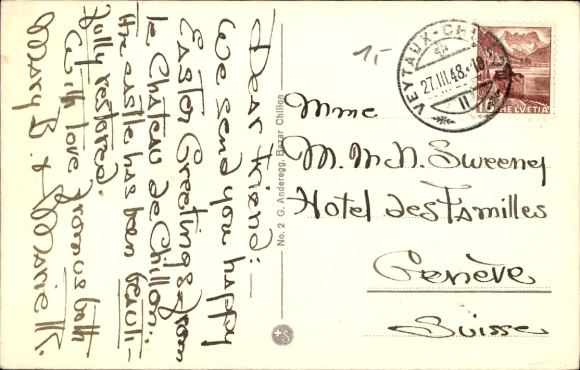 Dear Friend:—
We send you happy
Easter Greetings from
le Château de Chillon.
the castle has been beauti-
fully restored.
With love from us both
Mary B. &
No. 2 G. Anderegg, Bazar Chillon
+S
1.-
VEYTAUX-CHILLON
27.III.48.-18
II
10
HELVETIA
Mme
M. McN. Sweeney
Hotel des Familles
Genève
Suisse